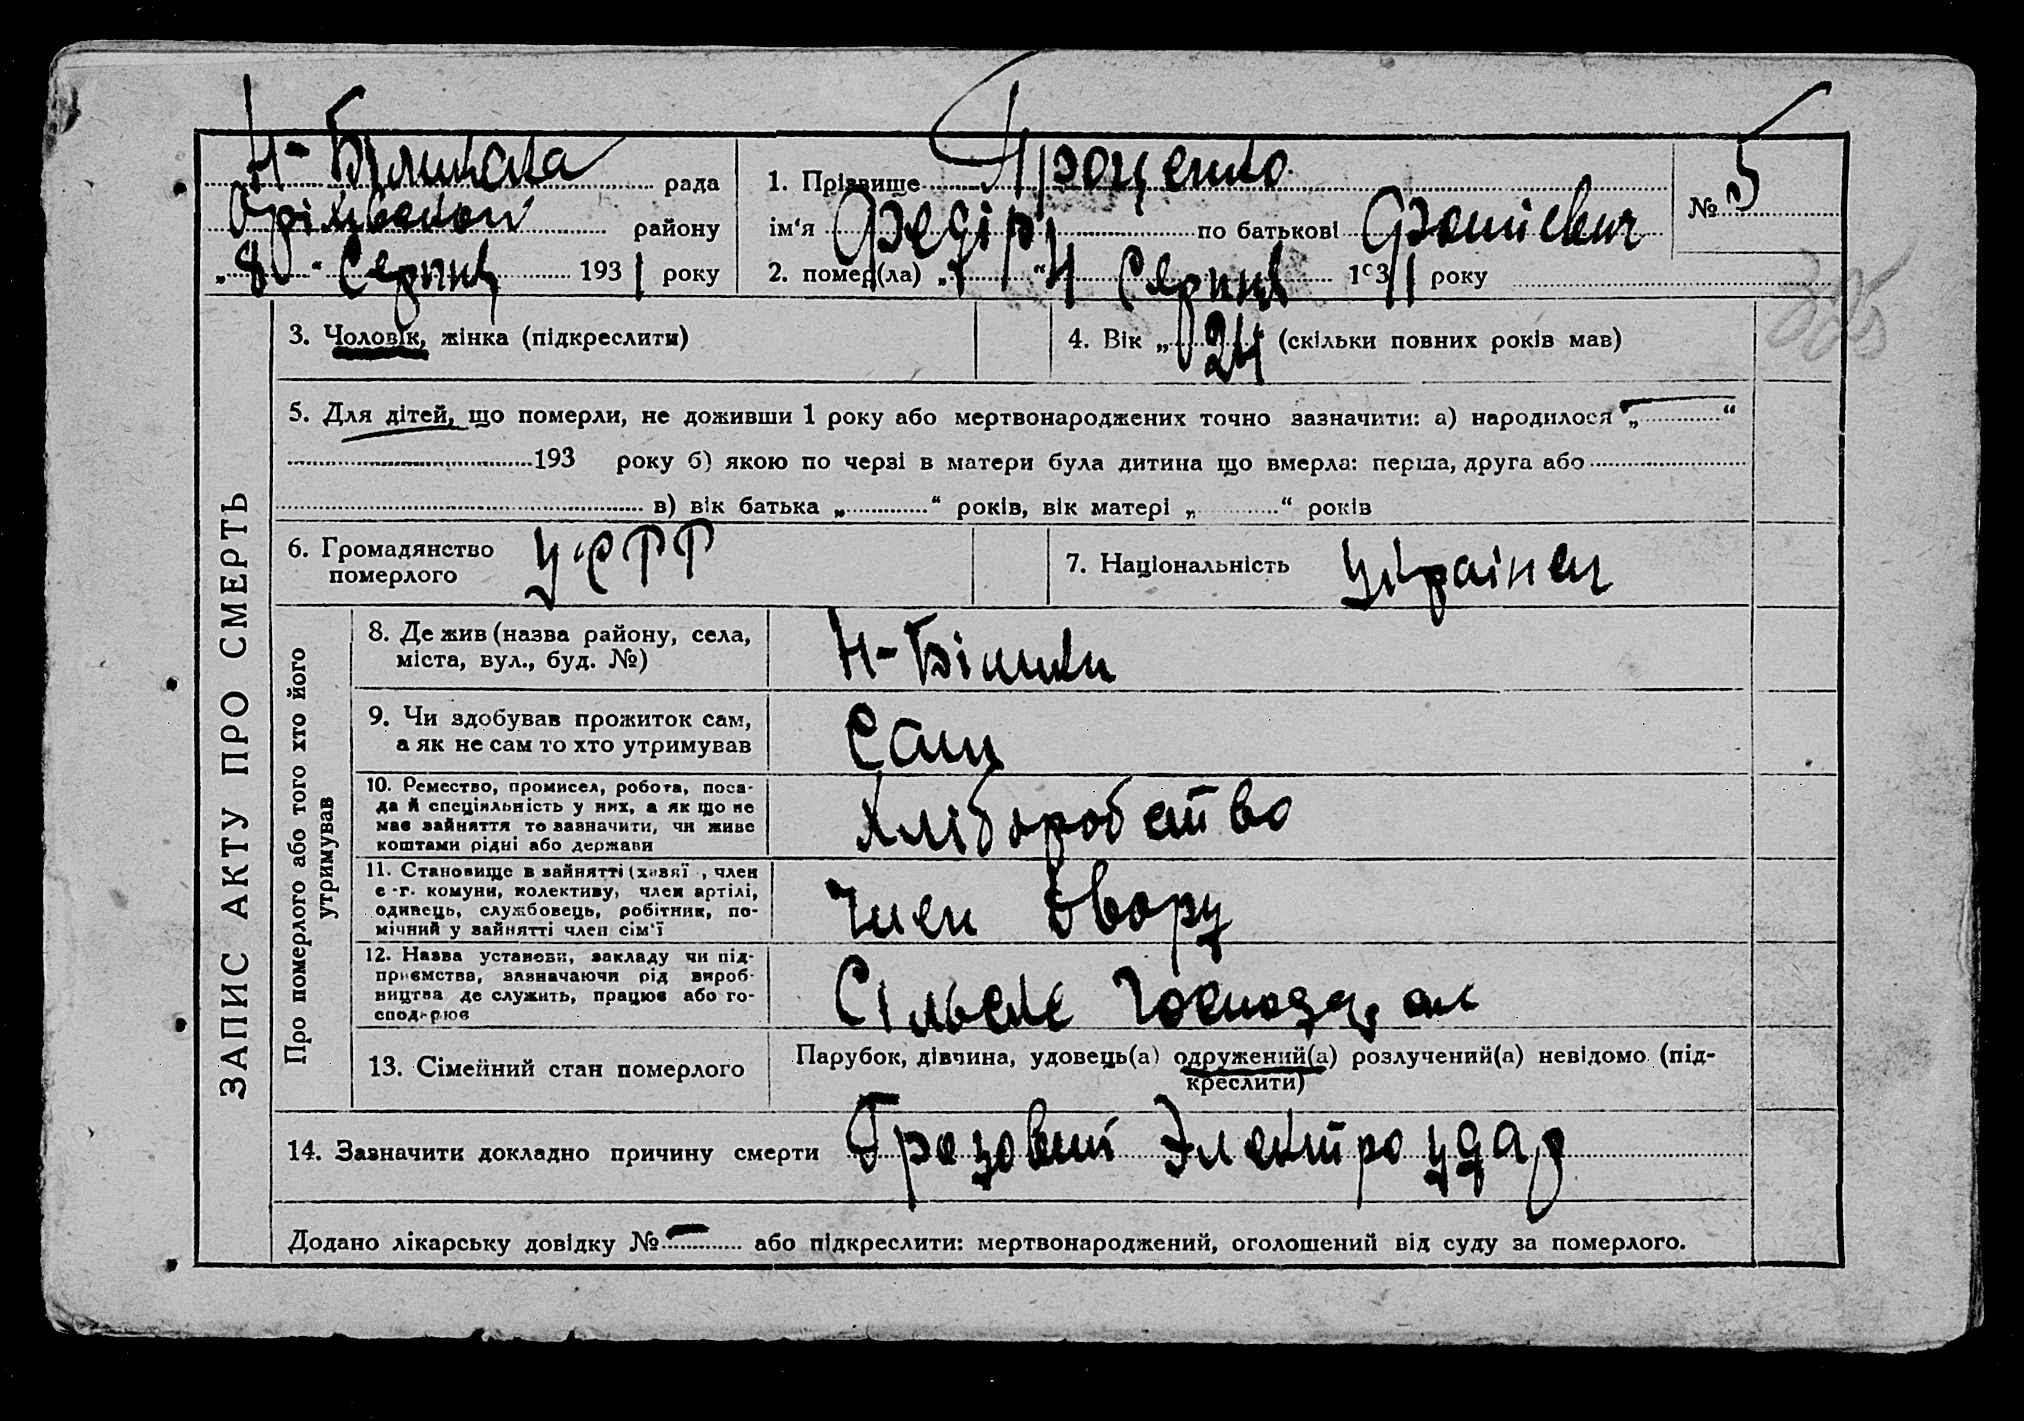 Н-Білицька рада
району
„8“ Серпня 1931 року
1. Прізвище Проценко
ім‘я Федір по батькові Фомієвич
2. помер(ла) „ “ Серпня 1931 року
№ 5
3. Чоловік, жінка (підкреслити)
4. Вік „24“ (скільки повних років мав)
5. Для дітей, що померли, не доживши 1 року або мертвонароджених точно зазначити: а) народилося „ “
193 року б) якою по черзі в матери була дитина що вмерла: перша, друга або
в) вік батька „ “ років, вік матері „ “ років
6. Громадянство
померлого
УСРР
7. Національність Українец
ЗАПИС АКТУ ПРО СМЕРТЬ
Про померлого або того хто його
утримував
8. Де жив (назва району, села,
міста, вул., буд. №)
Н-Білики
9. Чи здобував прожиток сам,
а як не сам то хто утримував
Сам
10. Ремество, промисел, робота, поса-
да й спеціяльність у них, а як що не
має зайняття то зазначити, чи живе
коштами рідні або держави
Хліборобство
11. Становище в зайнятті (хазяї , член
с-г. комуни, колективу, член артілі,
одинець, службовець, робітник, по-
мічний у зайнятті член сім‘ї
Член двору
12. Назва установи, закладу чи під-
приємства, зазначаючи рід вироб-
ництва де служить, працює або го-
сподарює
Сільське
13. Сімейний стан померлого
Парубок, дівчина, удовець(а) одружений(а) розлучений(а) невідомо (під-
креслити)
14. Зазначити докладно причину смерти Грозовий Электро удар
Додано лікарську довідку № — або підкреслити: мертвонароджений, оголошений від суду за померлого.